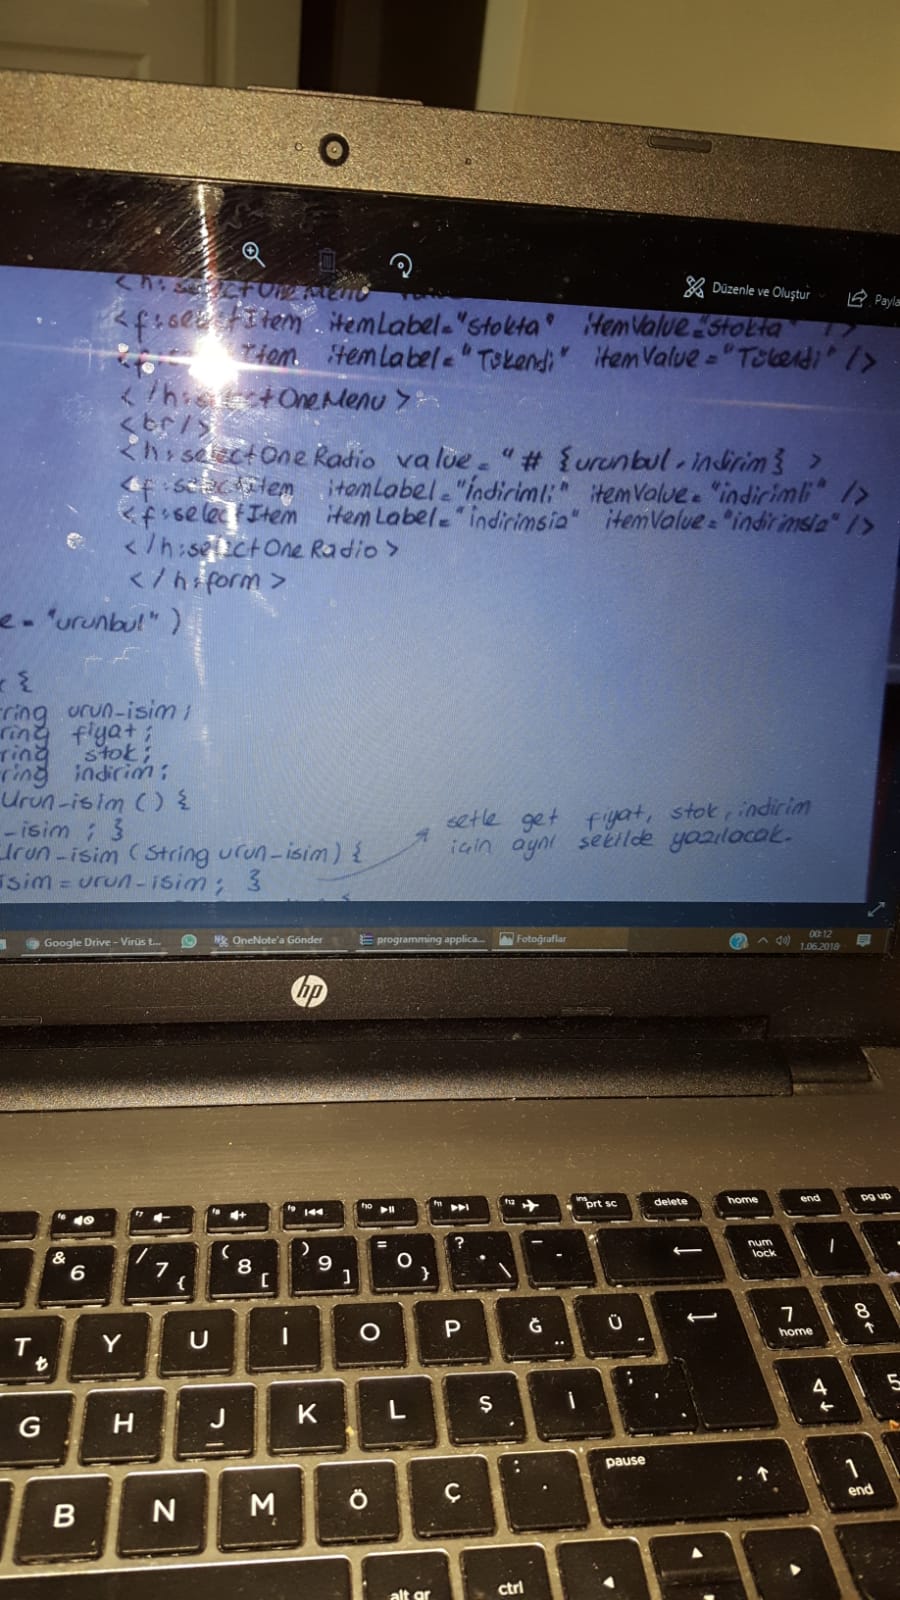 Düzenle ve Oluştur
Payla
<h:selectOneMenu
<f:selectItem itemLabel="Stokta" itemValue="Stokta" />
<f: Item itemLabel="Tükendi" itemValue="Tükendi" />
</h:selectOneMenu>
<br/>
<h:selectOneRadio value="#{urunbul.indirim} >
<f:selectItem itemLabel="İndirimli" itemValue="indirimli" />
<f:selectItem itemLabel="İndirimsiz" itemValue="indirimsiz" />
</h:selectOneRadio>
</h:form>
e="urunbul")
{
ring urun-isim;
ring fiyat;
ring stok;
ring indirim;
Urun-isim () {
-isim ; }
Urun-isim (String urun-isim) {
isim = urun-isim; }
setle get fiyat, stok, indirim
için aynı şekilde yazılacak.
Google Drive - Virüs t...
OneNote'a Gönder
programming applica...
Fotoğraflar
00:12
1.06.2018
hp
f6 f7 f8 f9 f10 f11 f12 ins prt sc delete home end pg up
& 6 / 7 { ( 8 [ ) 9 ] = 0 } ? * \ _ - num lock /
T ₺ Y U I O P Ğ ¨ Ü ~ 7 home 8
G H J K L Ş İ ; , 4 5
B N M Ö Ç : . pause 1 end
alt gr ctrl